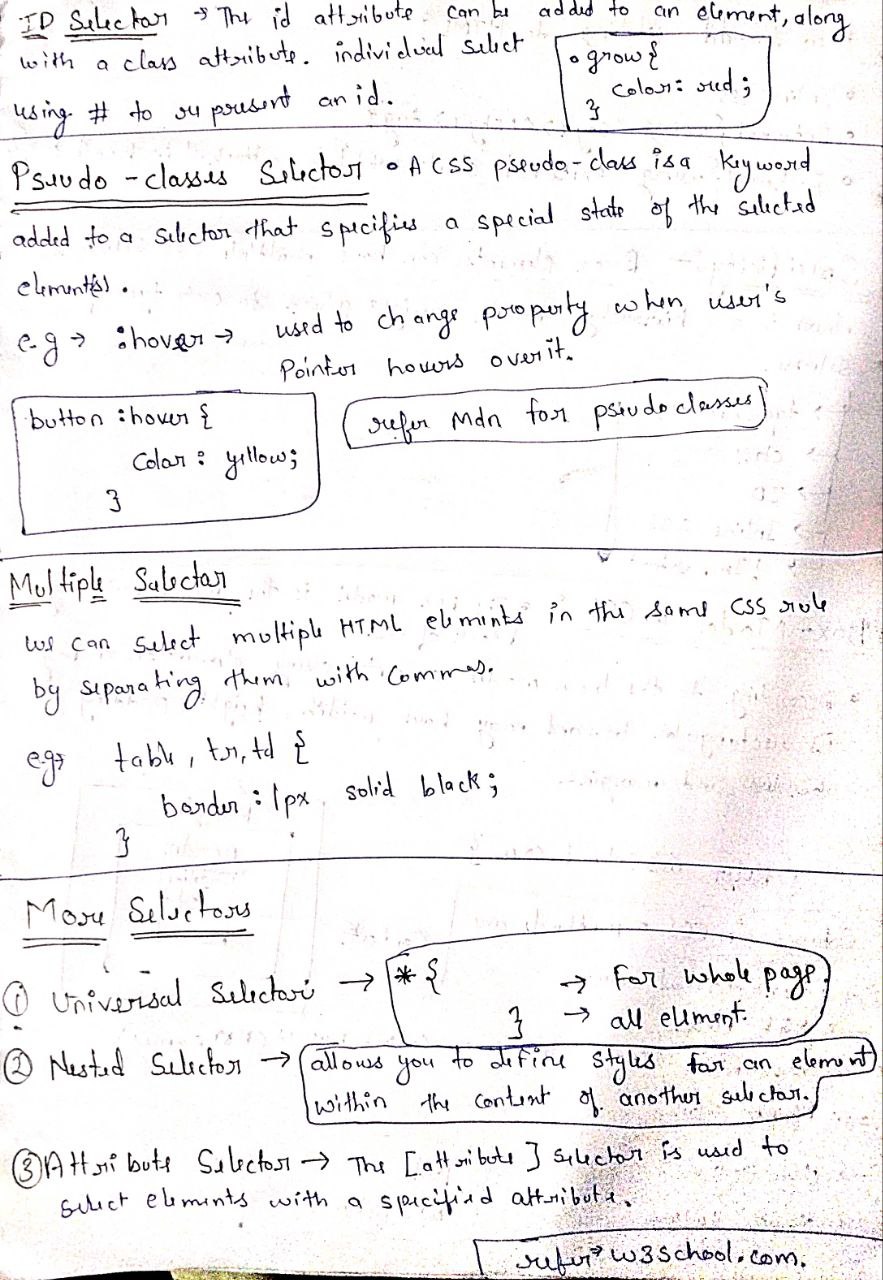 ID Selector → The id attribute can be added to an element, along
with a class attribute. individual select
using # to represent an id.
.grow {
color: red;
}
Pseudo-classes Selector • A CSS pseudo-class is a keyword
added to a selector that specifies a special state of the selected
element(s).
e.g → :hover → used to change property when user's
Pointer hovers over it.
button :hover {
color: yellow;
}
refer Mdn for pseudo classes
Multiple Selector
We can select multiple HTML elements in the same CSS rule
by separating them with commas.
e.g→ table, tr, td {
border: 1px solid black;
}
More Selectors
① Universal Selector → * { → For whole page.
} → all element.
② Nested Selector → allows you to define styles for an element
within the content of another selector.
③ Attribute Selector → The [attribute] selector is used to
select elements with a specified attribute.
refer→ w3school.com.